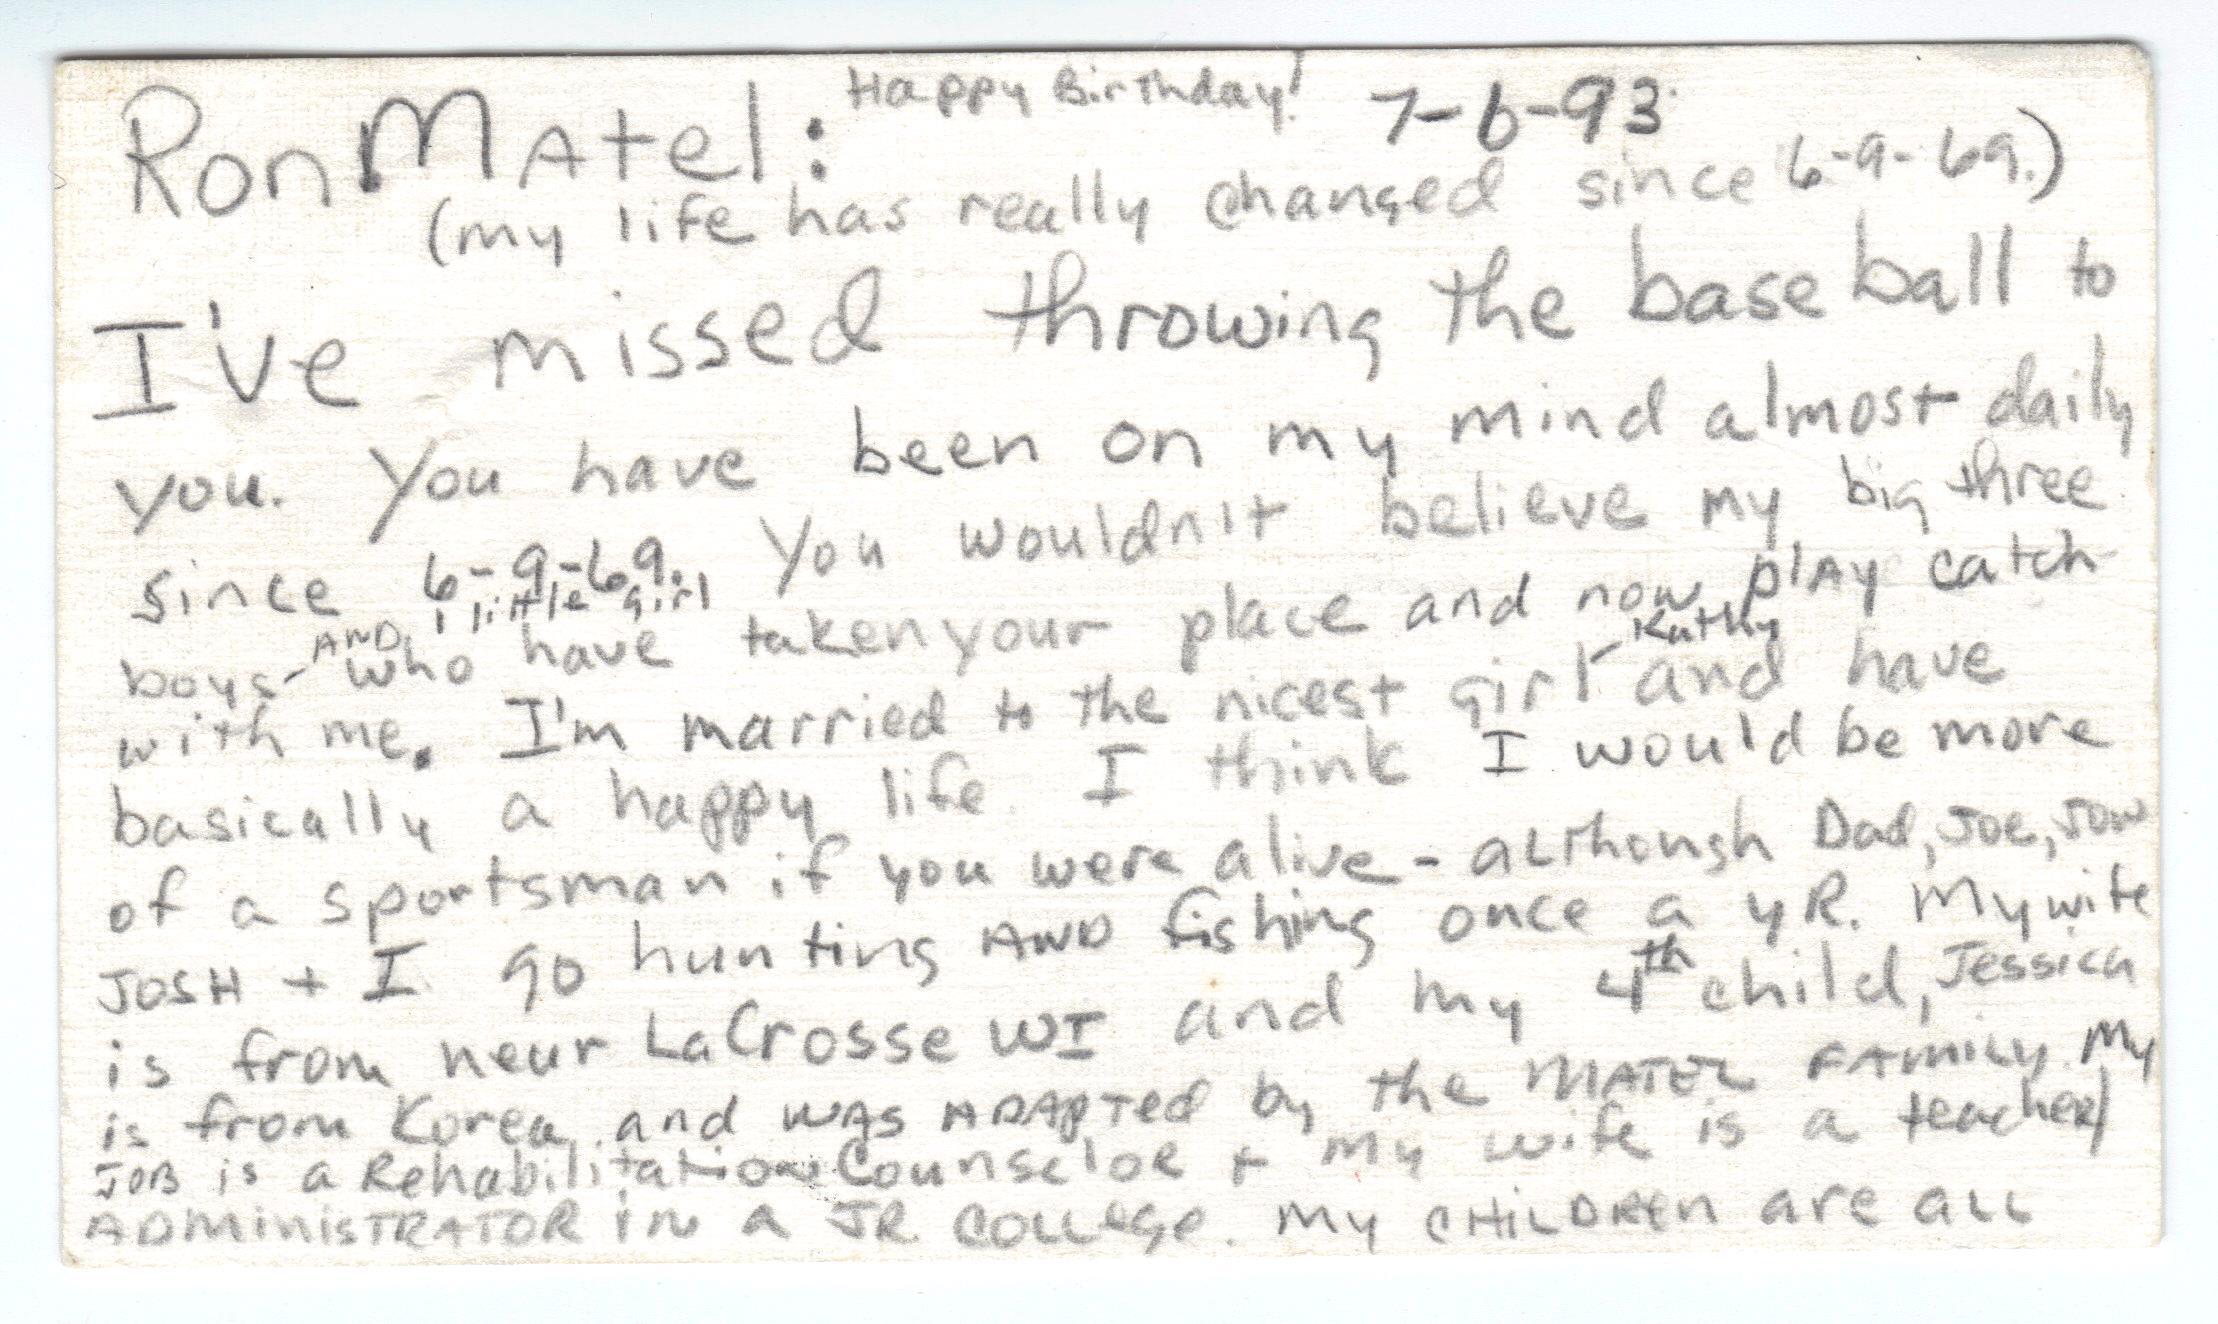 Ron Matel: Happy Birthday! 7-6-93
(my life has really changed since 6-9-69.)
I've missed throwing the baseball to
you. You have been on my mind almost daily
since 6-9-69. You wouldn't believe my big three
boys - AND 1 little girl who have taken your place and now play catch
with me. I'm married to the nicest girl - Kathy and have
basically a happy life. I think I would be more
of a sportsman if you were alive - although Dad, Joe, Jon
JOSH + I go hunting AND fishing once a yR. My wife
is from near LaCrosse WI and my 4th child, Jessica
is from Korea and WAS ADAPTed by the MATEL FAMILY. My
JOB is a Rehabilitation CounseloR + my wife is a teacher/
ADMinisTRATOR IN a JR. COLLege. My CHILDREN are aLL